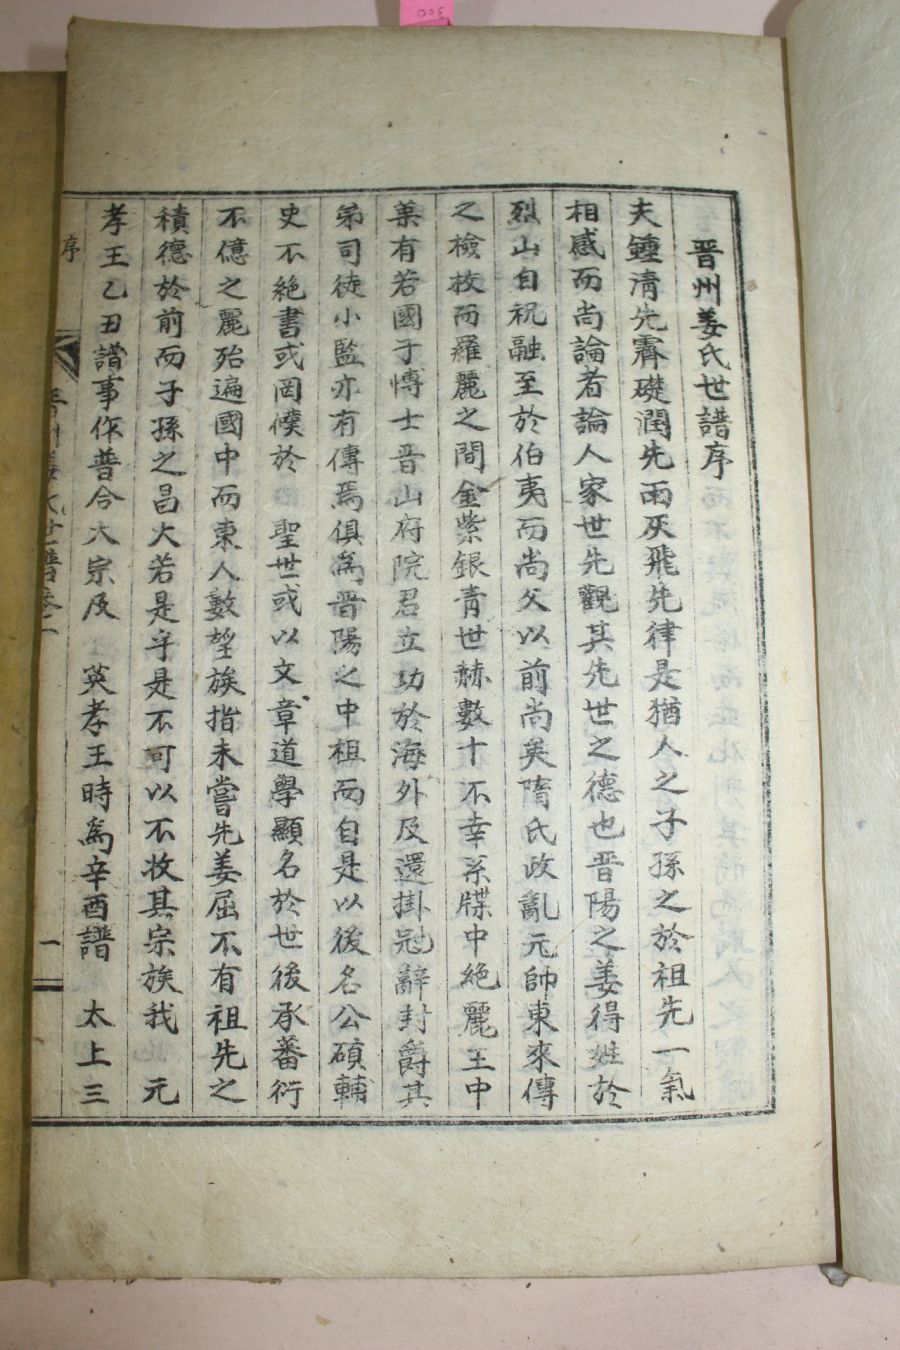 晋州姜氏世譜序
夫鍾清先霽礎潤先雨灰飛先律是猶人之子孫之於祖先一氣
相感而尚論者論人家世先觀其先世之德也晋陽之姜得姓於
烈山自祝融至於伯夷而尚父以前尚矣隋氏政亂元帥東來傳
之檢校而羅麗之間金紫銀青世赫數十不幸系牒中絶麗王中
葉有若國子博士晋山府院君立功於海外及還掛冠辭封爵其
弟司徒小監亦有傳焉俱爲晋陽之中祖而自是以後名公碩輔
史不絶書或罔僕於 聖世或以文章道學顯名於世後承蕃衍
不億之麗殆遍國中而東人數望族指未嘗先姜屈不有祖先之
積德於前而子孫之昌大若是乎是不可以不收其宗族我 元
孝王乙丑譜事作普合大宗及 英孝王時爲辛酉譜 太上三
序
晋州姜氏世譜卷二
一